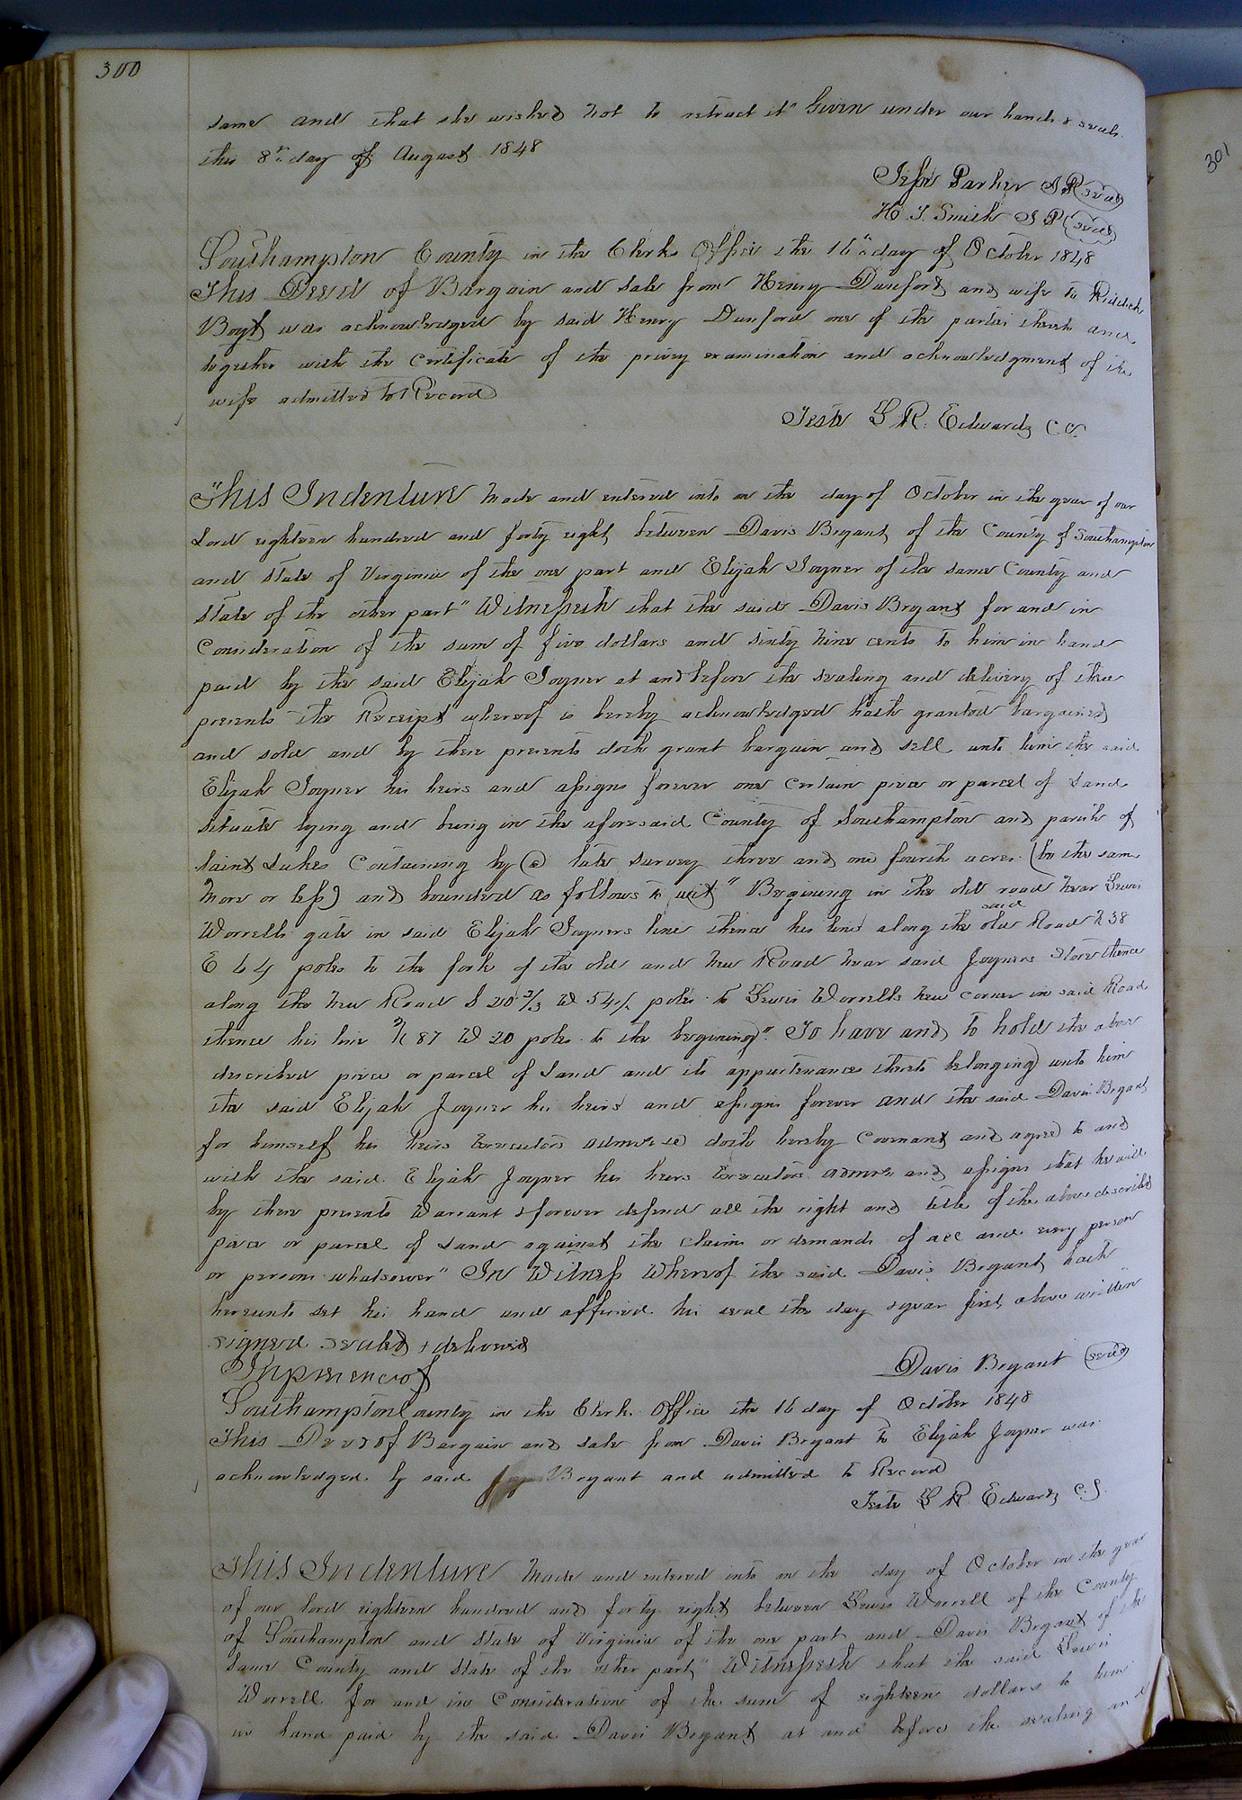 300
same and that she wished not to retract it" Given under our hands & seals
this 8th day of August 1848
Parker JP (seal)
H. J. Smith JP (seal)
Southampton County in the Clerks Office the 16th day of October 1848
This Deed of Bargain and sale from Henry Dunford and wife to Riddick
Boyt was acknowledged by said Henry Dunford one of the parties thereto and
together with the Certificate of the privy examination and acknowledgment of the
wife admitted to Record
Teste L R. Edwards CC.
This Indenture Made and entered into on the day of October in the year of our
Lord eighteen hundred and forty eight between Davis Bryant of the County of Southampton
and State of Virginia of the one part and Elijah Joyner of the same County and
State of the other part" Witnesseth that the said Davis Bryant for and in
Consideration of the sum of five dollars and sixty nine cents to him in hand
paid by the said Elijah Joyner at and before the sealing and delivery of these
presents the Receipt whereof is hereby acknowledged hath granted bargained
and sold and by these presents doth grant bargain and sell unto him the said
Elijah Joyner his heirs and assigns forever one certain piece or parcel of Land
Situate lying and being in the aforesaid County of Southampton and parish of
Saint Lukes Containing by (a) late survey three and one fourth acres (be the same
more or less) and bounded as follows to wit" Begining in the old road near Lewis
Worrells gate in said Elijah Joyners line thence his line along the old said Road N 38
E 64 poles to the fork of the old and New Road near said Joyners Store thence
along the New Road S 20 2/3 W 54 1/2 poles to Lewis Worrells New corner in said Road
thence his line N 87 W 20 poles to the begining". To have and to hold the above
described piece or parcel of Land and its appurtenances thereto belonging unto him
the said Elijah Joyner his heirs and assigns forever and the said Davis Bryant
for himself his heirs Executors admrs &c doth hereby Covenant and agree to and
with the said Elijah Joyner his heirs Executors admrs and assigns that he will
by these presents Warrant & forever defend all the right and title of the above described
piece or parcel of Land against the claims or demands of all and every person
or persons whatsoever" In Witness Whereof the said Davis Bryant hath
hereunto set his hand and affixed his seal the day & year first above written
signed sealed & delivered
In presence of
Davis Bryant (seal)
Southampton County in the Clerks Office the 16 day of October 1848
This Deed of Bargain and sale from Davis Bryant to Elijah Joyner was
acknowledged by said Bryant and admitted to Record
Teste L R Edwards C.C.
This Indenture Made and entered into on the day of October in the year
of our lord eighteen hundred and forty eight between Lewis Worrell of the County
of Southampton and State of Virginia of the one part and Davis Bryant of the
same County and State of the other part" Witnesseth that the said Lewis
Worrell for and in Consideration of the sum of eighteen dollars to him
in hand paid by the said Davis Bryant at and before the sealing and
301